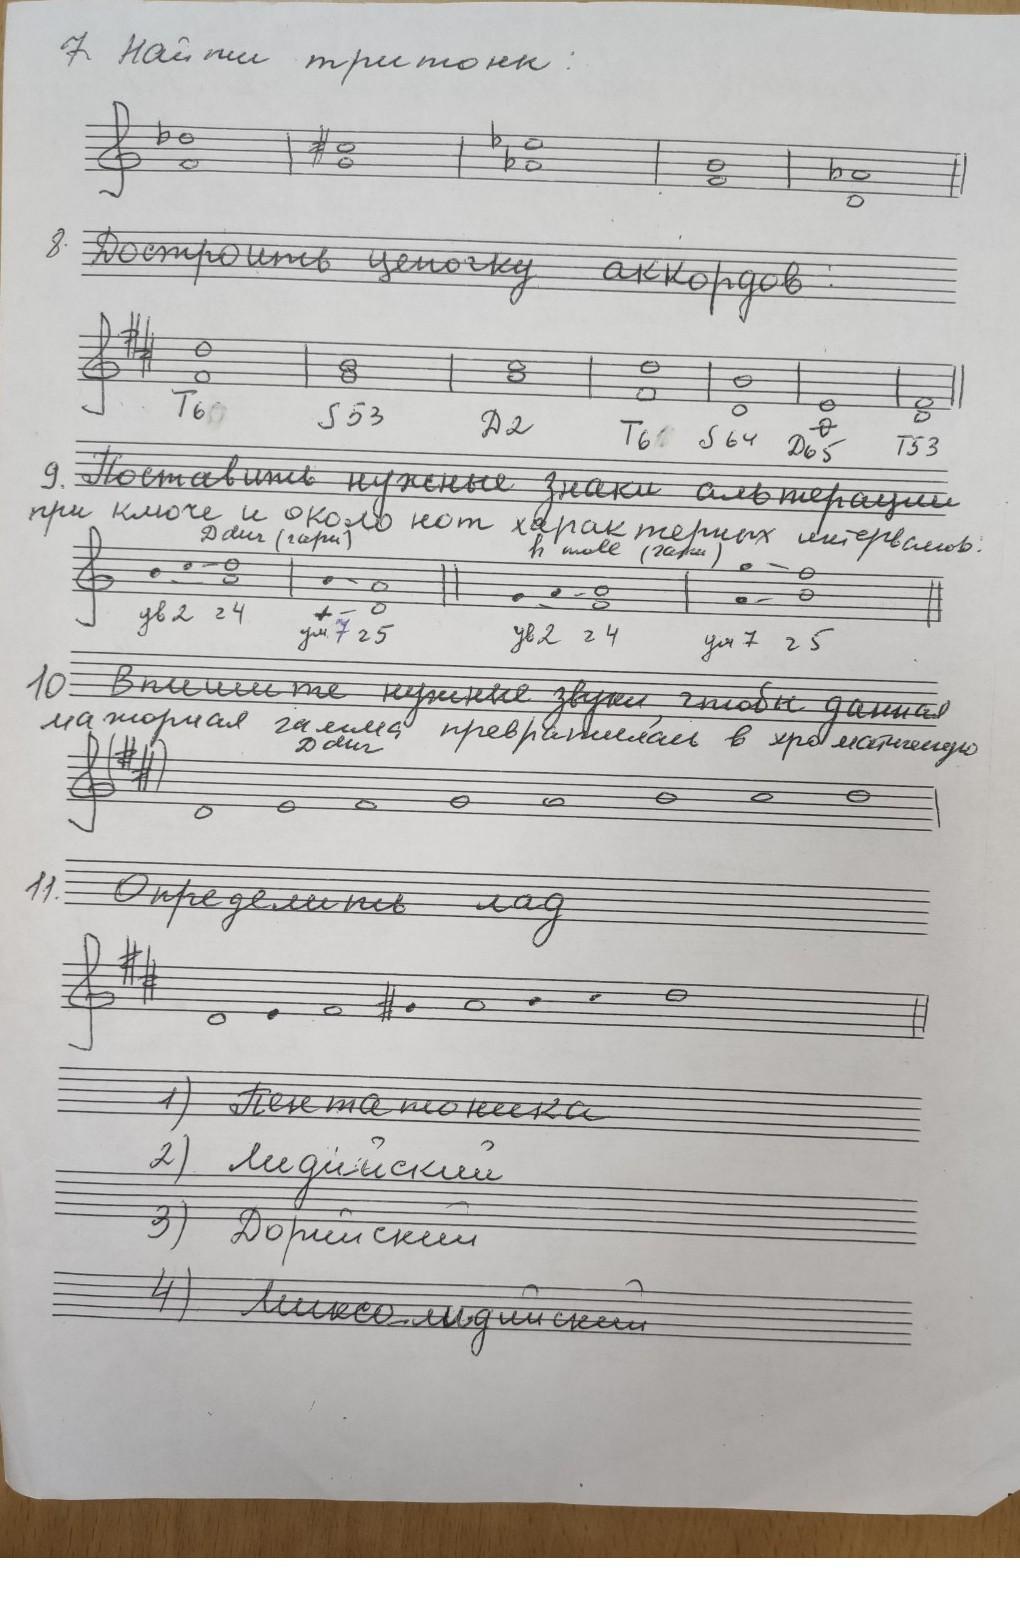 7. Найти тритоны:
8. Достроить цепочку аккордов:
T6 S53 Д2 T6 S64 Д65 T53
9. Поставить нужные знаки альтерации
при ключе и около нот характерных интервалов:
D dur (гарм) h moll (гарм)
ув2 ч4 ум7 ч5 ув2 ч4 ум7 ч5
10 Впишите нужные звуки, чтобы данная
мажорная гамма превратилась в хроматическую
D dur
11. Определить лад
1) Пентатоника
2) Лидийский
3) Дорийский
4) Миксолидийский